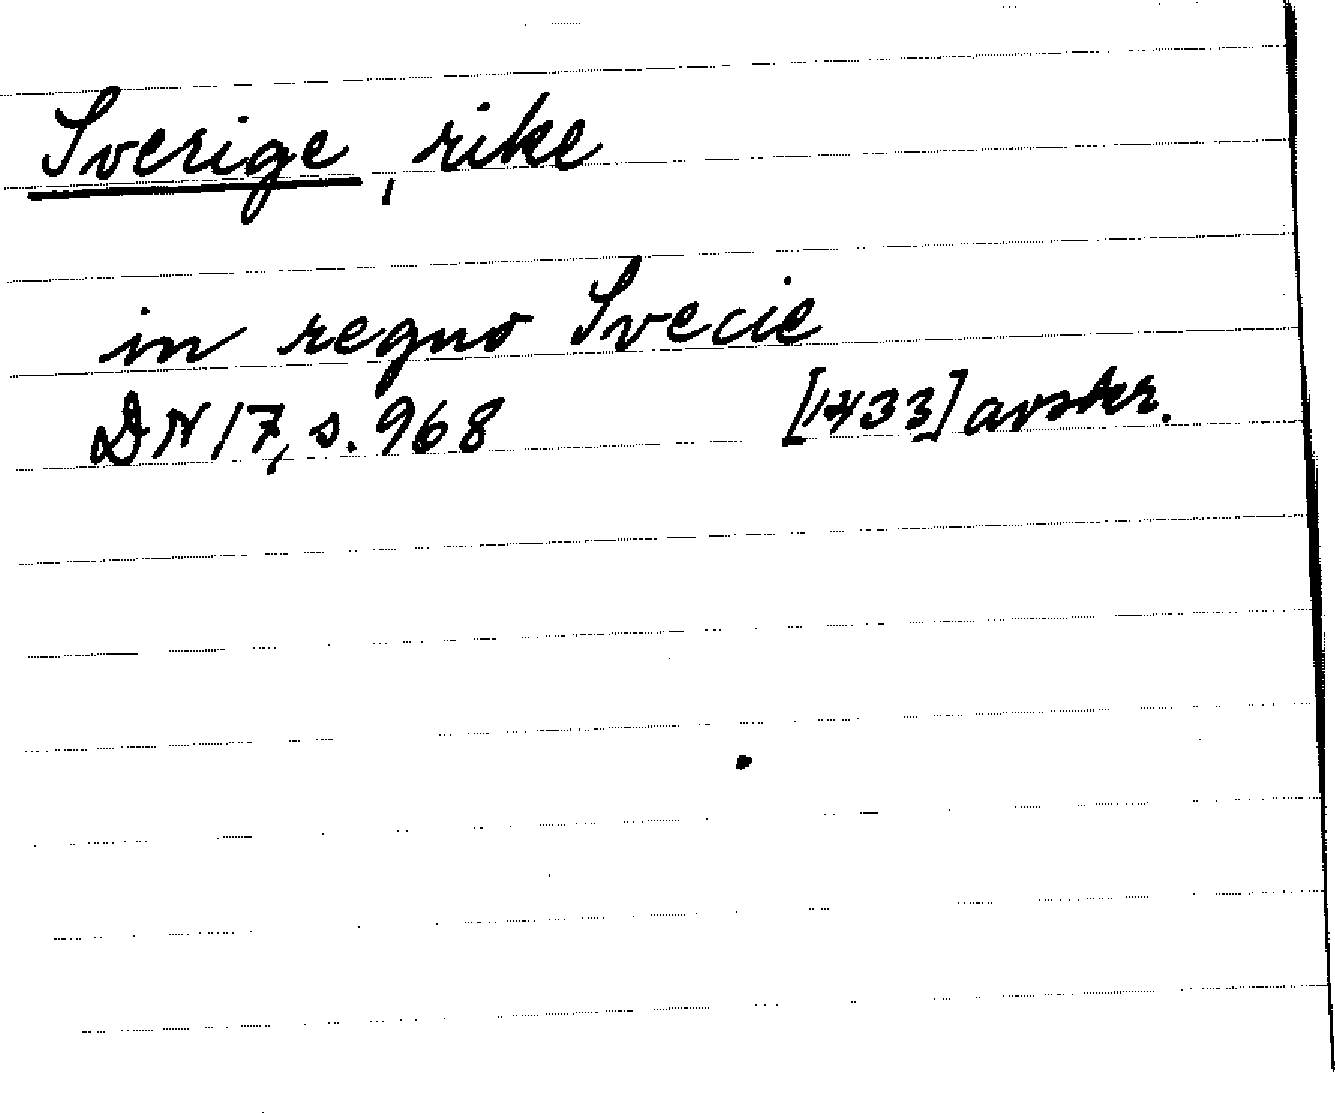 Sverige, rike
in regno Svecie
DN 17, s. 968 [1433] avskr.